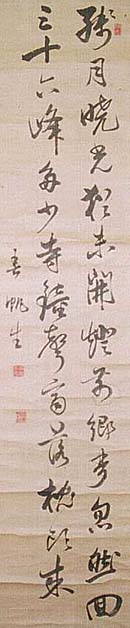 殘月曉光猶未開燈前鄉夢忽然回
三十六峰多少寺鐘聲齊落枕頭來
春帆生